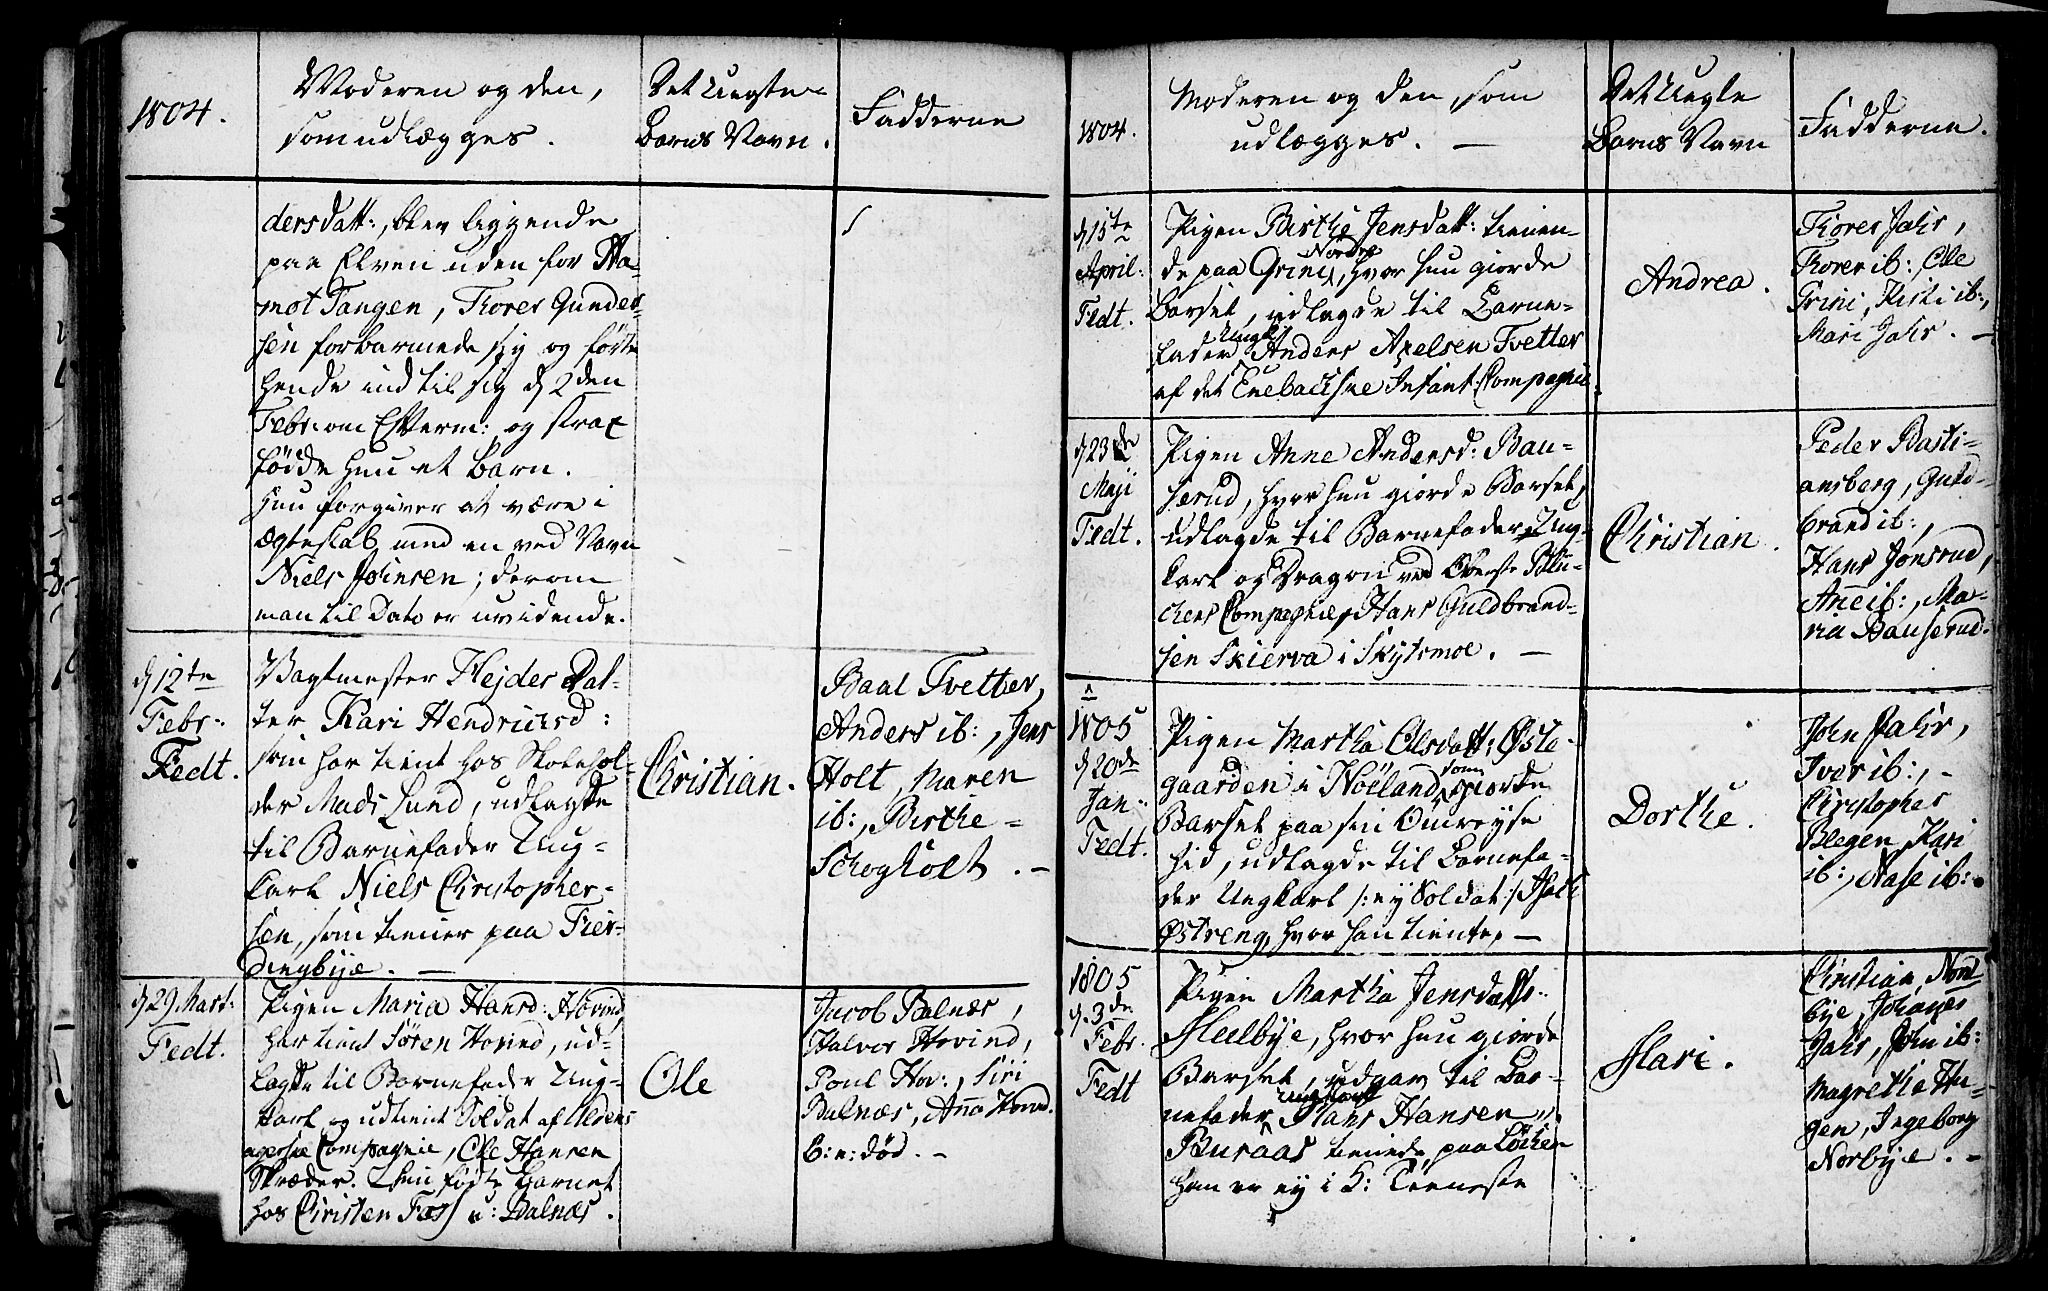 1804.
Moderen og den,
som udlægges.
Det Uegte
Barns Navn.
Fadderne
dersdatt:, blev liggende
paa Elven uden for Ha-
mot Tangen, Thorer Gunder-
sen forbarmede sig og førte
hende ind til sig d 2den
Febr: om Efterm: og strax
fødde hun et Barn.
Hun forgiver at være i
Ægteskab med en ved Navn
Niels Johnsen; derom
man til Dato er uvidende.
d 12te
Febr:
Fedt.
Vagtmester Hejders Dat-
ter Kari Hendricksd:
som har tient hos Skolehol-
der Mads Lund, udlagde
til Barnefader Ung-
karl Niels Christopher-
sen, som tiener paa Fier-
dingbye. —
Christian.
Baal Tvetter,
Anders ib:, Jens
Holt, Maren
ib:, Birthe
Schogholt. —
d 29 Mart:
Fedt.
Pigen Maria Hansd: Hovind,
har tient Søren Hovind, ud-
lagde til Barnefader Ung-
karl og udtient Soldat af
Compagnie, Ole Hansen
Skræder. Hun fødte Barnet
hos Christen Foss u: Balnæs.
Ole
Jacob Balnæs,
Halvor Hovind,
Poul Hov:, Siri
Balnæs, Anna Hovind.
B: n: død. —
1804.
Moderen og den, som
udlægges. —
Det Uegte
Barns Navn
Fadderne.
d 15te
April:
Fedt.
Pigen Birthe Jensdatt: tienen-
de paa Grini Nordre, hvor hun giorde
Barsel, udlagde til Barne-
fader Ungk: Anders Axelsen Tvetter
af det Enebachske Infant: Compagnie.
Andrea.
Thorer Jahr,
Thorer ib:, Ole
Grini, Kisti ib:,
Mari Jahr. —
d 23de
Maji
Fedt.
Pigen Anne Andersd: Bau-
serud, hvor hun giorde Barsel,
udlagde til Barnefader Ung-
karl og Dragon ved Oberste Blü-
chers Compagnie, Hans Guldbrand-
sen Skierva i Skytsmoe. —
Christian.
Peder Basti-
ansberg, Guld-
brand ib:,
Hans Jonsrud,
Anne ib:, Ma-
ria Bauserud.
1805
d 20de
Jan:
Fedt.
Pigen Martha Olsdatt: Øste-
gaarden i Høland som giorde
Barsel paa sin Omreyse
hid, udlagde til Barnefa-
der Ungkarl /: ey Soldat :/
Østreng, hvor han tiente, —
Dorthe.
John Jahr,
Iver ib:, —
Christopher
Blegen, Kari
ib:, Aase ib:
1805
d. 3de
Febr.
Fedt
Pigen Martha Jensdatt:
Hellbye, hvor hun giorde
Barsel, udgav til Bar-
nefader Ungkarl Hans Hansen
Buraas tienende paa Løchen
han er ey i K: Tieneste
Mari.
Christian Nord
bye, Johannes
Jahr, John ib:
Magrethe Hu-
gen, Ingeborg
Norbye. —